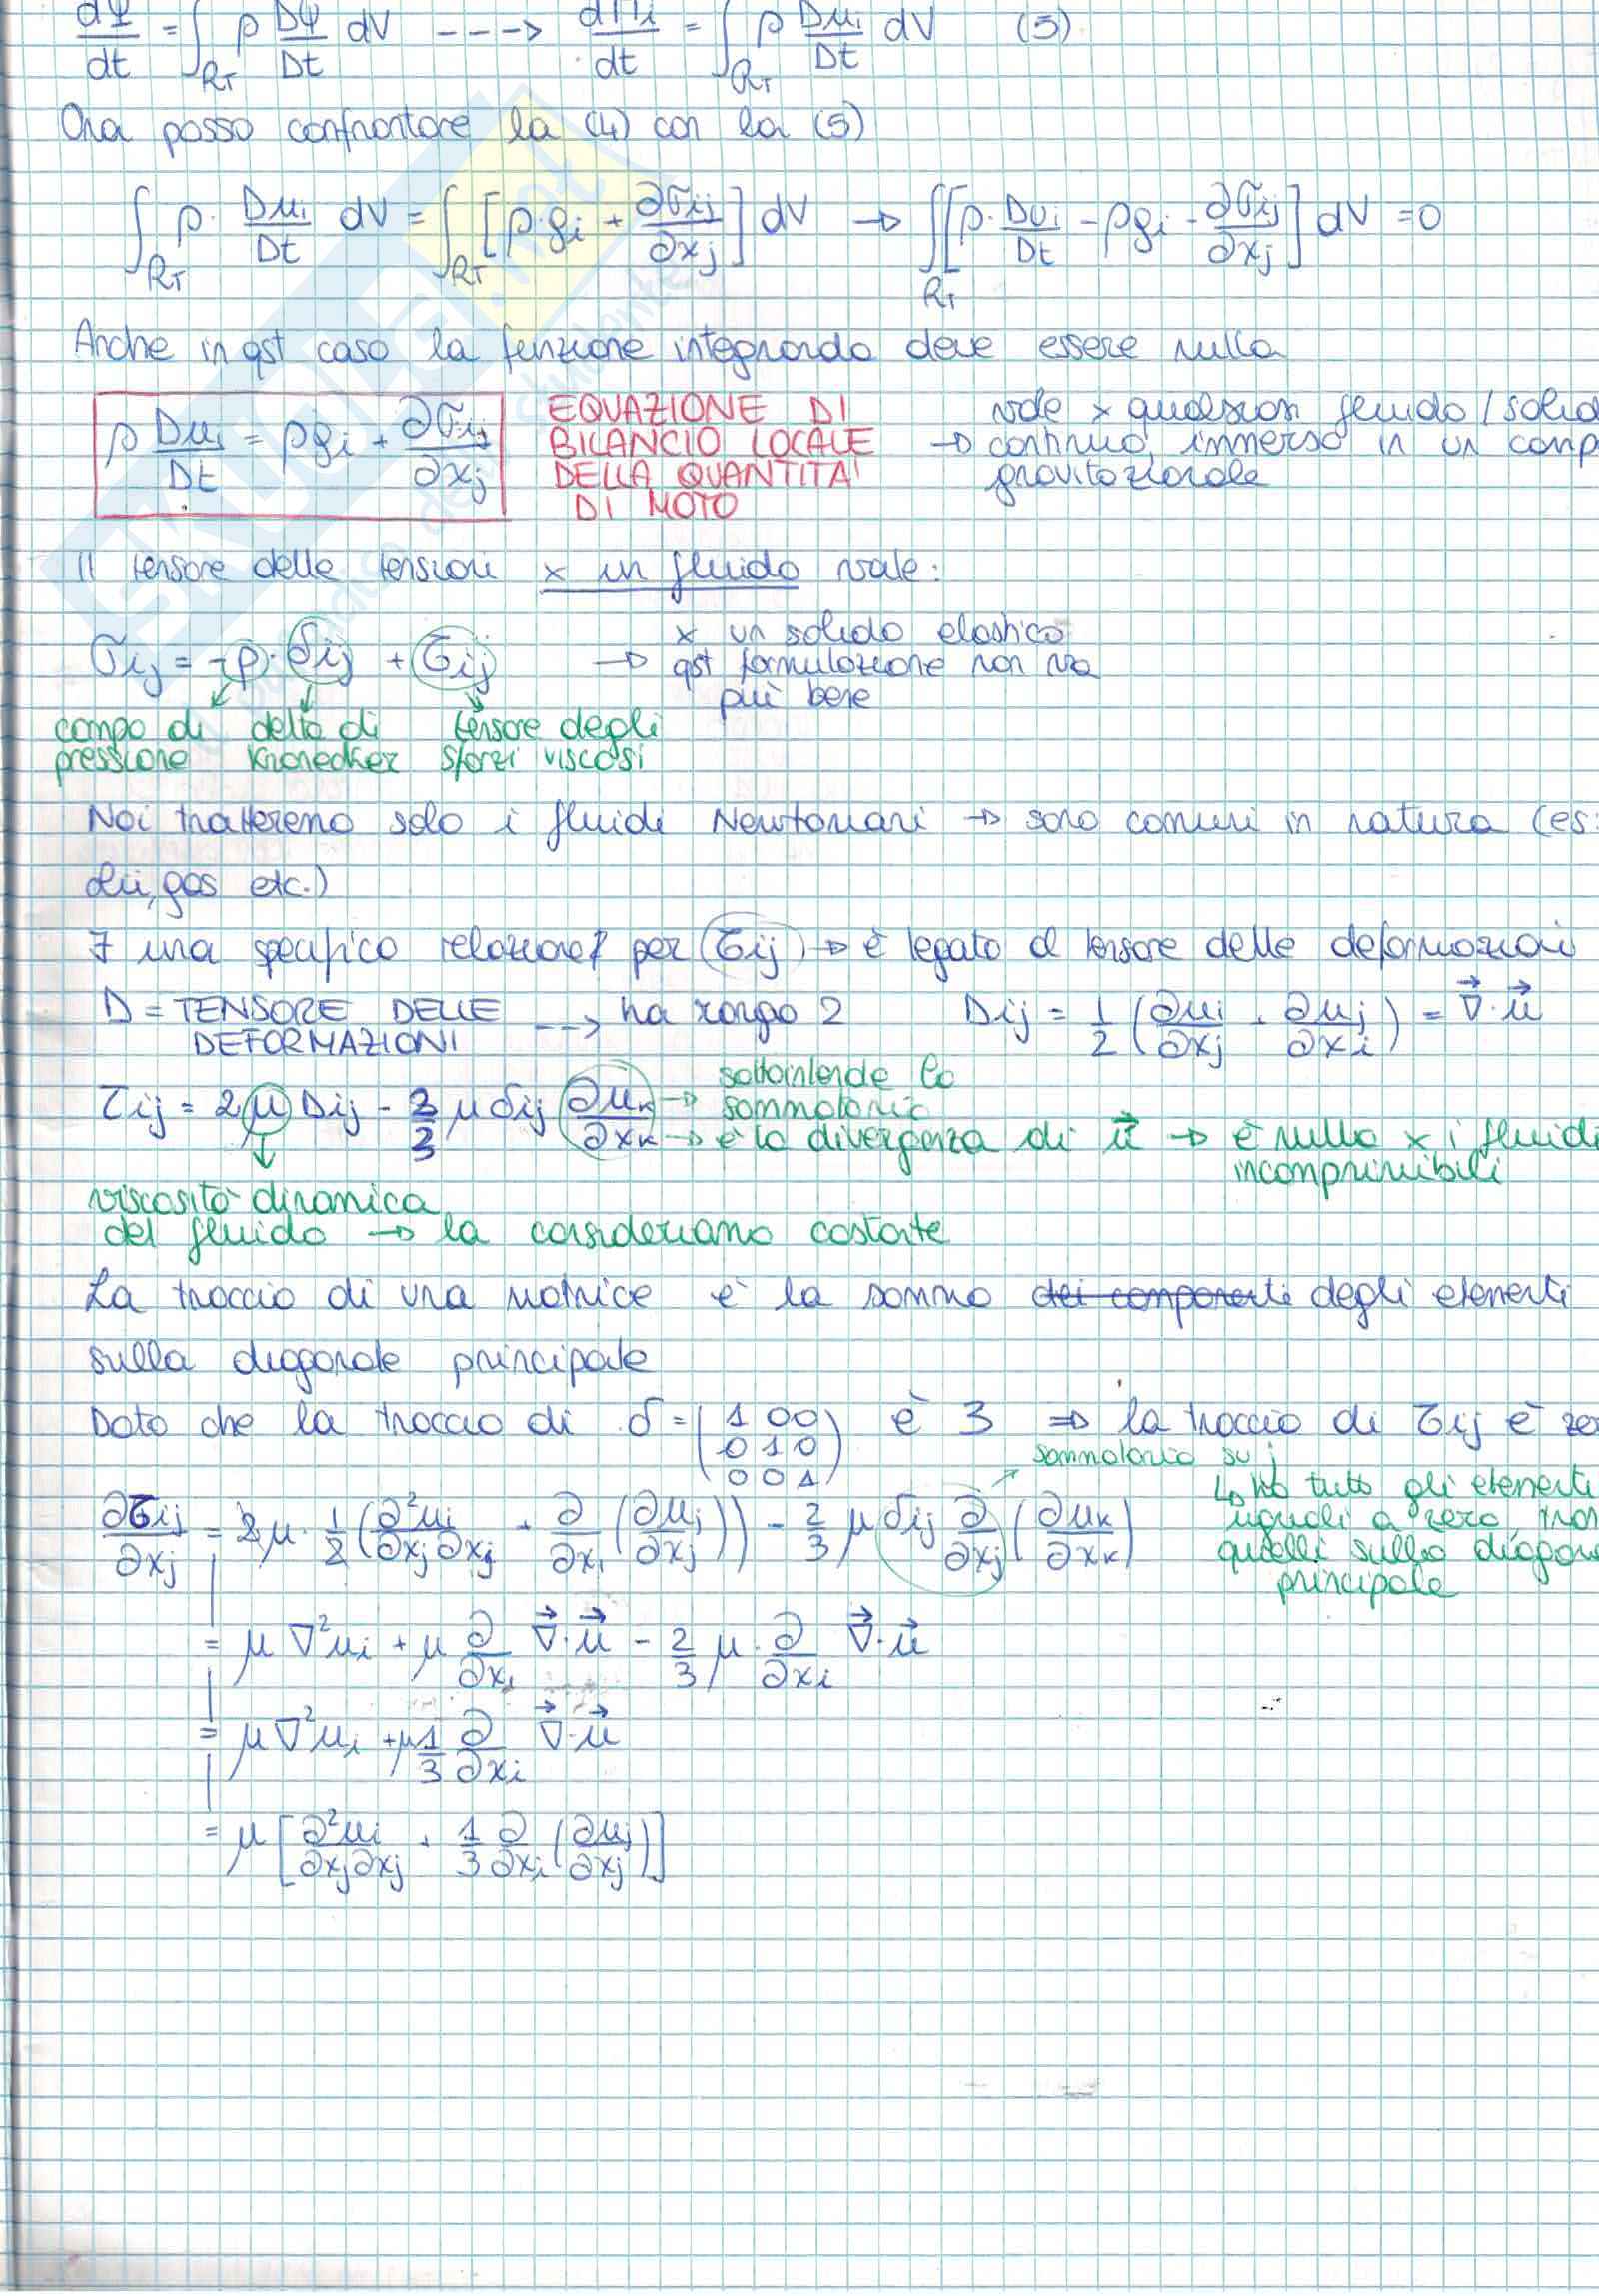 dΨ/dt = ∫_RT ρ DΨ/Dt dV ----> dMi/dt = ∫_RT ρ Dui/Dt dV (5)
Ora posso confrontare la (4) con la (5)
∫_RT ρ· Dui/Dt dV = ∫_RT [ρ·gi + ∂σij/∂xj] dV → ∫∫_RT [ρ· Dui/Dt - ρgi - ∂σij/∂xj] dV = 0
Anche in qst caso la funzione integranda deve essere nulla
ρ Dui/Dt = ρgi + ∂σij/∂xj
EQUAZIONE DI
BILANCIO LOCALE
DELLA QUANTITA'
DI MOTO
vale x qualsiasi fluido / solid
→ continuo, immerso in un camp
gravitazionale
Il tensore delle tensioni x un fluido vale:
σij = -p·δij + τij
→ x un solido elastico
qst formulazione non va
più bene
campo di pressione
delta di Kronecker
tensore degli sforzi viscosi
Noi tratteremo solo i fluidi Newtoniani → sono comuni in natura (es:
olii, gas etc.)
∃ una specifica relazione per τij → è legato al tensore delle deformazioni
D = TENSORE DELLE DEFORMAZIONI --> ha rango 2 Dij = 1/2 (∂ui/∂xj + ∂uj/∂xi) = ∇·u
τij = 2μ Dij - 2/3 μ δij ∂uk/∂xk
→ sottointende la
sommatoria
→ è la divergenza di u → è nulla x i fluidi
incomprimibili
viscosità dinamica
del fluido → la consideriamo costante
La traccia di una matrice è la somma dei componenti degli elementi
sulla diagonale principale
Dato che la traccia di δ = (1 0 0
0 1 0
0 0 1) è 3 ⇒ la traccia di τij è ze
sommatoria su j
↳ ho tutto gli elementi
uguali a zero, tran
quelli sulla diagona
principale
∂τij/∂xj = 2μ · 1/2 (∂²ui/∂xj∂xj + ∂/∂xi (∂uj/∂xj)) - 2/3 μ δij ∂/∂xj (∂uk/∂xk)
= μ ∇²ui + μ ∂/∂xi ∇·u - 2/3 μ · ∂/∂xi ∇·u
= μ ∇²ui + μ 1/3 ∂/∂xi ∇·u
= μ [∂²ui/∂xj∂xj + 1/3 ∂/∂xi (∂uj/∂xj)]